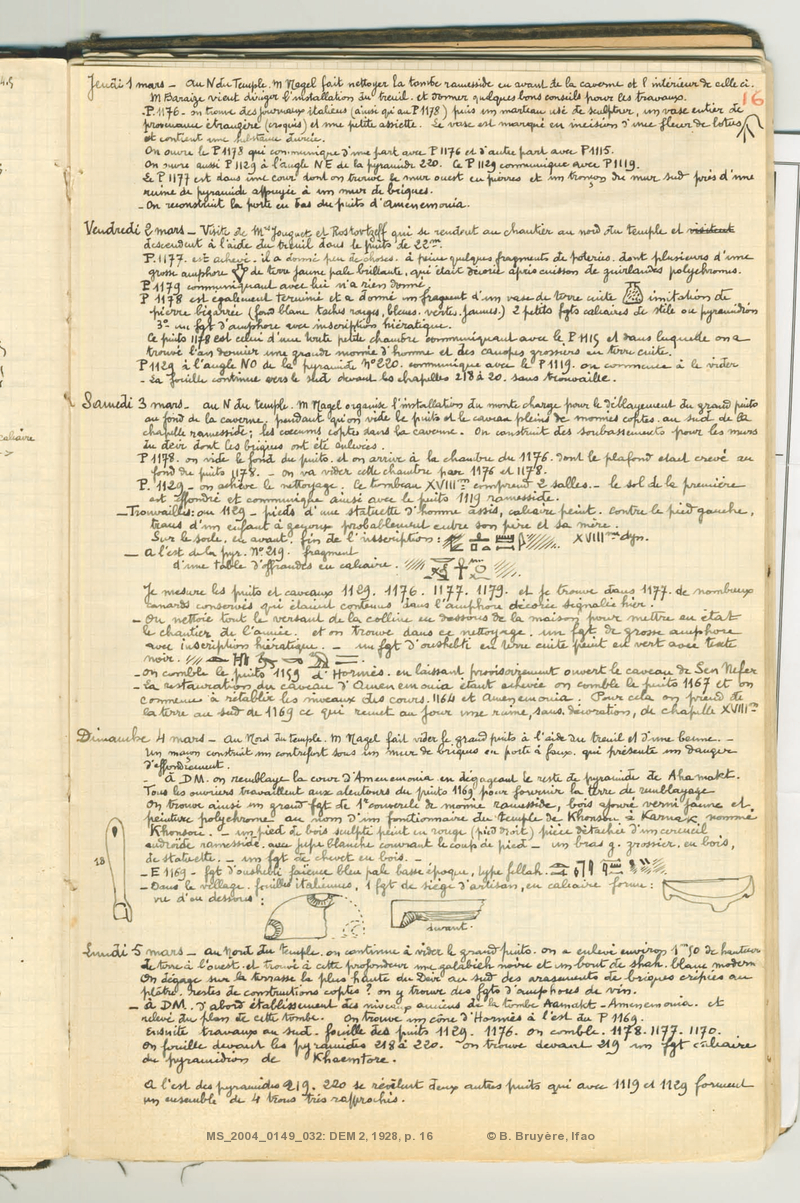 16
Jeudi 1 mars – Au N du Temple. M Nagel fait nettoyer la tombe ramesside en avant de la caverne et l'intérieur de celle ci.
M Baraize vient diriger l'installation du treuil. et donner quelques bons conseils pour les travaux.
P. 1176. on trouve des journaux italiens (ainsi qu'au P 1178) puis un marteau usé de sculpteur, un vase entier de
provenance étrangère (croquis) et une petite assiette. Le vase est marqué en incision d'une fleur de lotus
et contient une substance durcie.
On ouvre le P 1178 qui communique d'une part avec P 1176 et d'autre part avec P 1115.
On ouvre aussi P 1129 à l'angle NE de la pyramide 220. Ce P 1129 communique avec P 1119.
Le P 1177 est dans une cour dont on trouve le mur ouest en pierres et un tronçon du mur sud près d'une
ruine de pyramide appuyée à un mur de briques.
– On reconstruit la porte en bas du puits d'Amenemonia.
Vendredi 2 mars – Visite de Mrs Jouguet et Rostovtzeff qui se rendent au chantier au nord du temple et visitent
descendent à l'aide du treuil dans le puits de 22m.
P. 1177. est achevé. il a donné peu de choses. à peine quelques fragments de poteries. dont plusieurs d'une
grosse amphore de terre jaune pale brillante, qui était décorée après cuisson de guirlandes polychromes.
P 1179 communiquant avec lui n'a rien donné.
P 1178 est egalement terminé et a donné un fragment d'un vase de terre cuite imitation de
pierre bigarrée (fond blanc taches rouges, bleues. vertes. jaunes.) 2 petits fgts calcaires de stèle ou pyramidion
3° un fgt d'amphore avec inscription hiératique.
Ce puits 1178 est celui d'une toute petite chambre communiquant avec le P 1115 et dans laquelle on a
trouvé l'an dernier une grande momie d'homme et des canopes grossiers en terre cuite.
P 1129 à l'angle NO de la pyramide N° 220. communique avec le P 1119. on commence à le vider
– La fouille continue vers le sud devant les chapelles 218 à 20. sans trouvaille.
Samedi 3 mars – au N du temple. M Nagel organise l'installation du monte charge pour le déblayement du grand puits
au fond de la caverne; pendant qu'on vide le puits et le caveau pleins de momies coptes. au sud de la
chapelle ramesside; les cocums coptes dans la caverne. On construit des soubassements pour les murs
du deir dont les briques ont été enlevées.
P 1178. on vide le fond du puits. et on arrive à la chambre du 1176. dont le plafond etait crevé au
fond du puits 1178. – on va vider cette chambre par 1176 et 1178.
P. 1129 – on achève le nettoyage. Ce tombeau XVIIIme comprend 2 salles. – le sol de la première
est effondré et communique ainsi avec le puits 1119 ramesside.
– Trouvailles: au 1129 – pieds d'une statuette d'homme assis, calcaire peint. contre le pied gauche,
traces d'un enfant à genoux probablement entre son père et sa mère.
Sur le socle, en avant, fin de l'inscription: XVIIIme dyn.
– A l'est de la pyr. N° 219. fragment
d'une table d'offrandes en calcaire.
Je mesure les puits et caveaux 1129. 1176. 1177. 1179. et je trouve dans 1177. de nombreux
canards conservés qui étaient contenus dans l'amphore décorée signalée hier.
– On nettoie tout le versant de la colline en dessous de la maison pour mettre en état
le chantier de l'année. et on trouve dans ce nettoyage. un fgt de grosse amphore
avec inscription hiératique. – un fgt d'oushebti en terre cuite peint en vert avec texte
noir.
– On comble le puits 1159 d'Hormès. en laissant provisoirement ouvert le caveau de Sen Nefer
– La restauration du caveau d'Amenemonia étant achevée on comble le puits 1167 et on
commence à rétablir les niveaux des cours. 1164 et Amenemonia. Pour cela on prend de
la terre au sud de 1169 ce qui remet au jour une ruine, sans décoration, de chapelle XVIIIme
Dimanche 4 mars – Au Nord du temple. M Nagel fait vider le grand puits à l'aide du treuil et d'une benne. –
Un maçon construit un contrefort sous un mur de briques en porte à faux. qui présente un danger
d'effondrement.
– à DM. on remblaye la cour d'Amenemonia en dégageant le reste de pyramide de Ahamakt.
Tous les ouvriers travaillent aux alentours du puits 1169 pour fournir la terre de remblayage
On trouve ainsi un grand fgt de couvercle de momie ramesside, bois ajouré verni jaune et
peinture polychrome au nom d'un fonctionnaire du temple de Khonsou à Karnak nommé
Khonsou. – un pied de bois sculpté peint en rouge (pied droit) pièce détachée d'un cercueil
androïde ramesside. avec jupe blanche couvrant le coup de pied – un bras g. grossier. en bois,
de statuette. – un fgt de chevet en bois. –
– E 1169 – fgt d'oushebti faïence bleu pale basse époque, type fellah.
– Dans le village. fouilles italiennes, 1 fgt de siège d'artisan, en calcaire forme:
vue d'en dessous:
suivant.
18
Lundi 5 mars – Au Nord du temple. on continue à vider le grand puits. on a enlevé environ 1m50 de hauteur
de terre à l'ouest. et trouvé à cette profondeur une galabieh noire et un bout de shah. blanc modern
On dégage sur la terrasse la plus haute du Deir au sud des arasements de briques crépies au
plâtre. restes de constructions coptes? on y trouve des fgts d'amphores de vin.
– à DM. d'abord établissement des niveaux anciens de la tombe Aamakt – Amenemonia. et
relevé du plan de cette tombe. On trouve un cône d'Hormès à l'est du P 1169.
Ensuite travaux au sud – fouille des puits 1129. 1176. on comble. 1178. 1177. 1170.
On fouille devant les pyramides 218 à 220. on trouve devant 219 un fgt calcaire
de pyramidion de Khaemtore.
A l'est des pyramides 219. 220 se révèlent deux autres puits qui avec 1119 et 1129 forment
un ensemble de 4 trous très rapprochés.
MS_2004_0149_032: DEM 2, 1928, p. 16 © B. Bruyère, Ifao